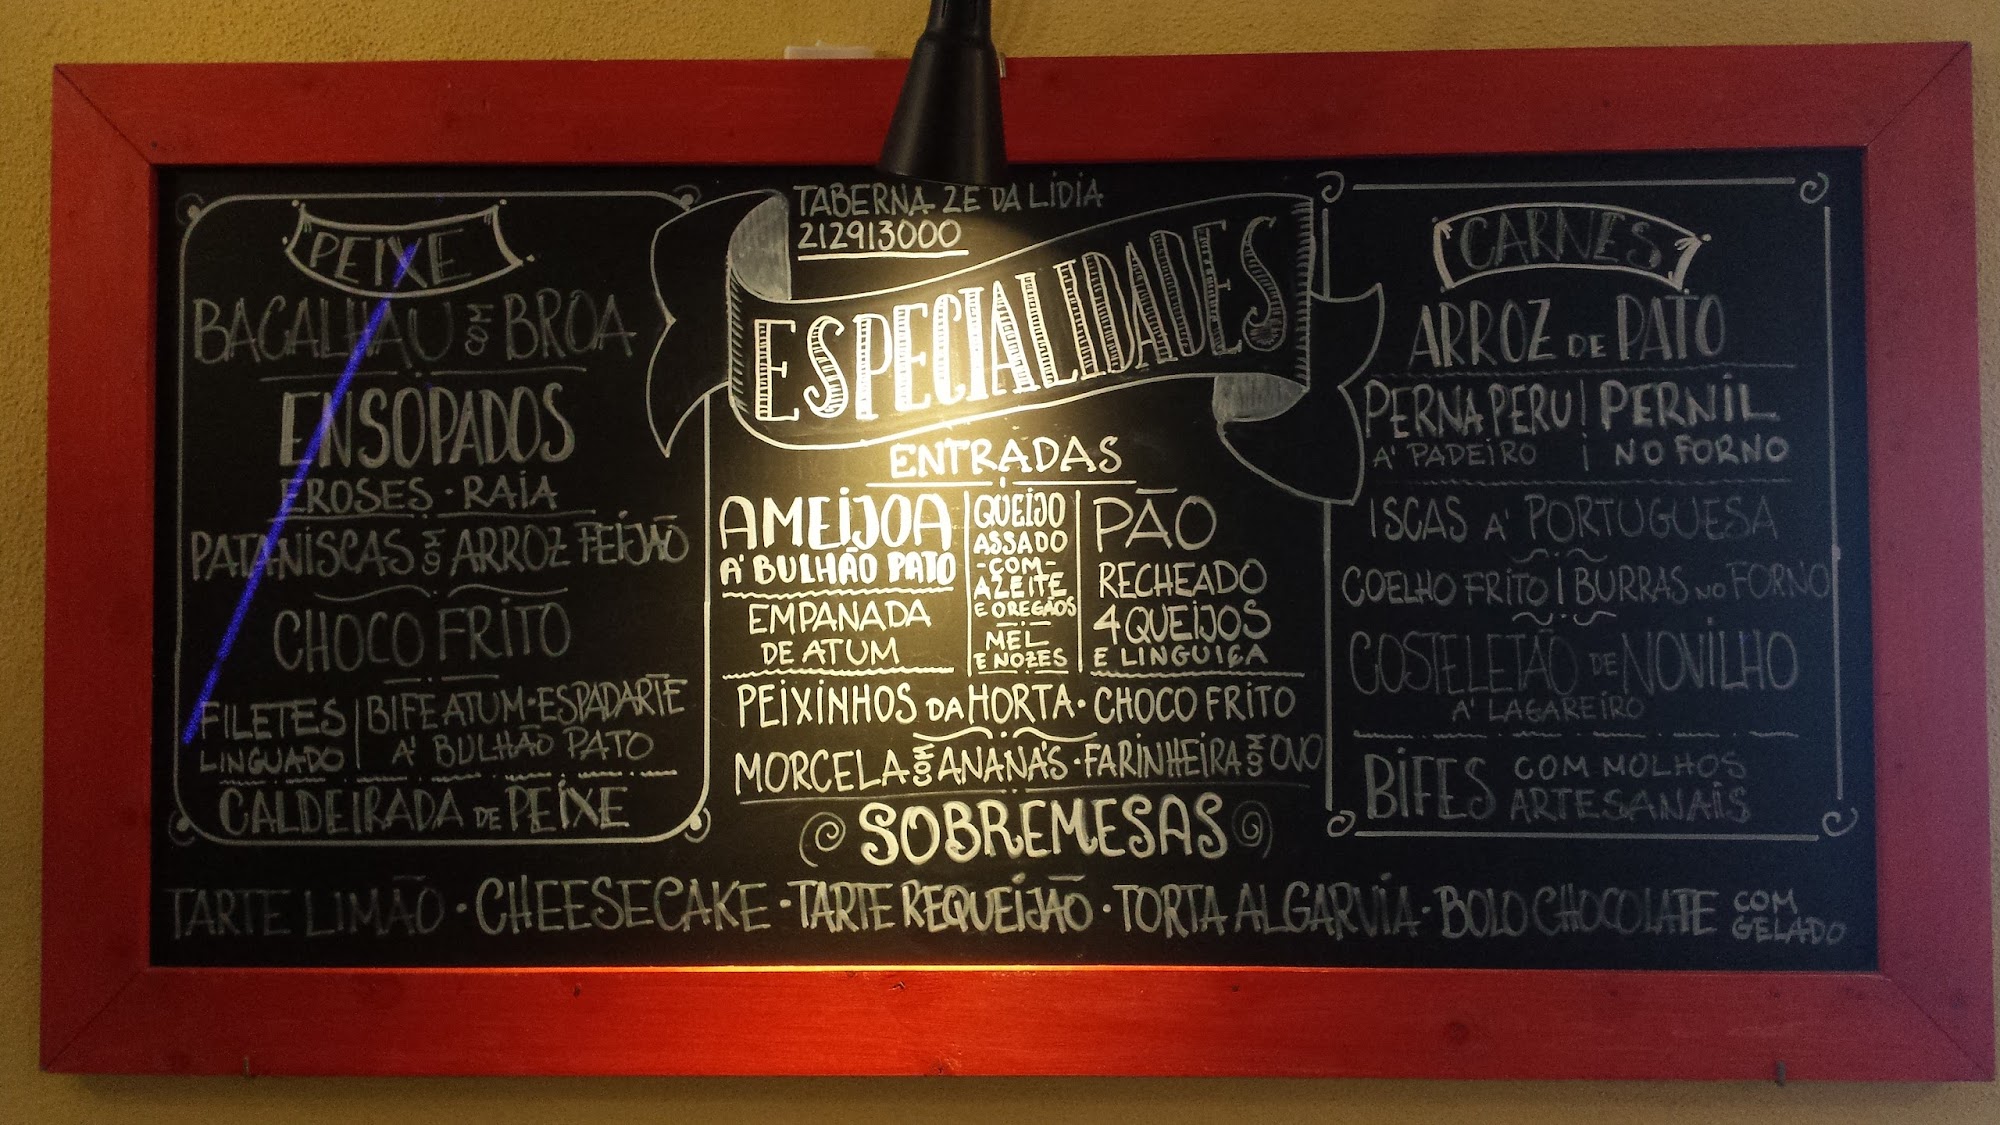 TABERNA ZE DA LÍDIA
212913000
ESPECIALIDADES
PEIXE
BACALHAU COM BROA
ENSOPADOS
EROSES · RAIA
PATANISCAS COM ARROZ FEIJÃO
CHOCO FRITO
FILETES
LINGUADO
BIFE ATUM · ESPADARTE
À BULHÃO PATO
CALDEIRADA DE PEIXE
ENTRADAS
AMEIJOA
À BULHÃO PATO
EMPANADA
DE ATUM
QUEIJO
ASSADO
- COM -
AZEITE
E OREGÃOS
MEL
E NOZES
PÃO
RECHEADO
4 QUEIJOS
E LINGUIÇA
PEIXINHOS DA HORTA · CHOCO FRITO
MORCELA COM ANANÁS · FARINHEIRA COM OVO
CARNES
ARROZ DE PATO
PERNA PERU
À PADEIRO
PERNIL
NO FORNO
ISCAS À PORTUGUESA
COELHO FRITO | BURRAS NO FORNO
COSTELETÃO DE NOVILHO
À LAGAREIRO
BIFES COM MOLHOS
ARTESANAIS
SOBREMESAS
TARTE LIMÃO · CHEESECAKE · TARTE REQUEIJÃO · TORTA ALGARVIA · BOLO CHOCOLATE COM GELADO